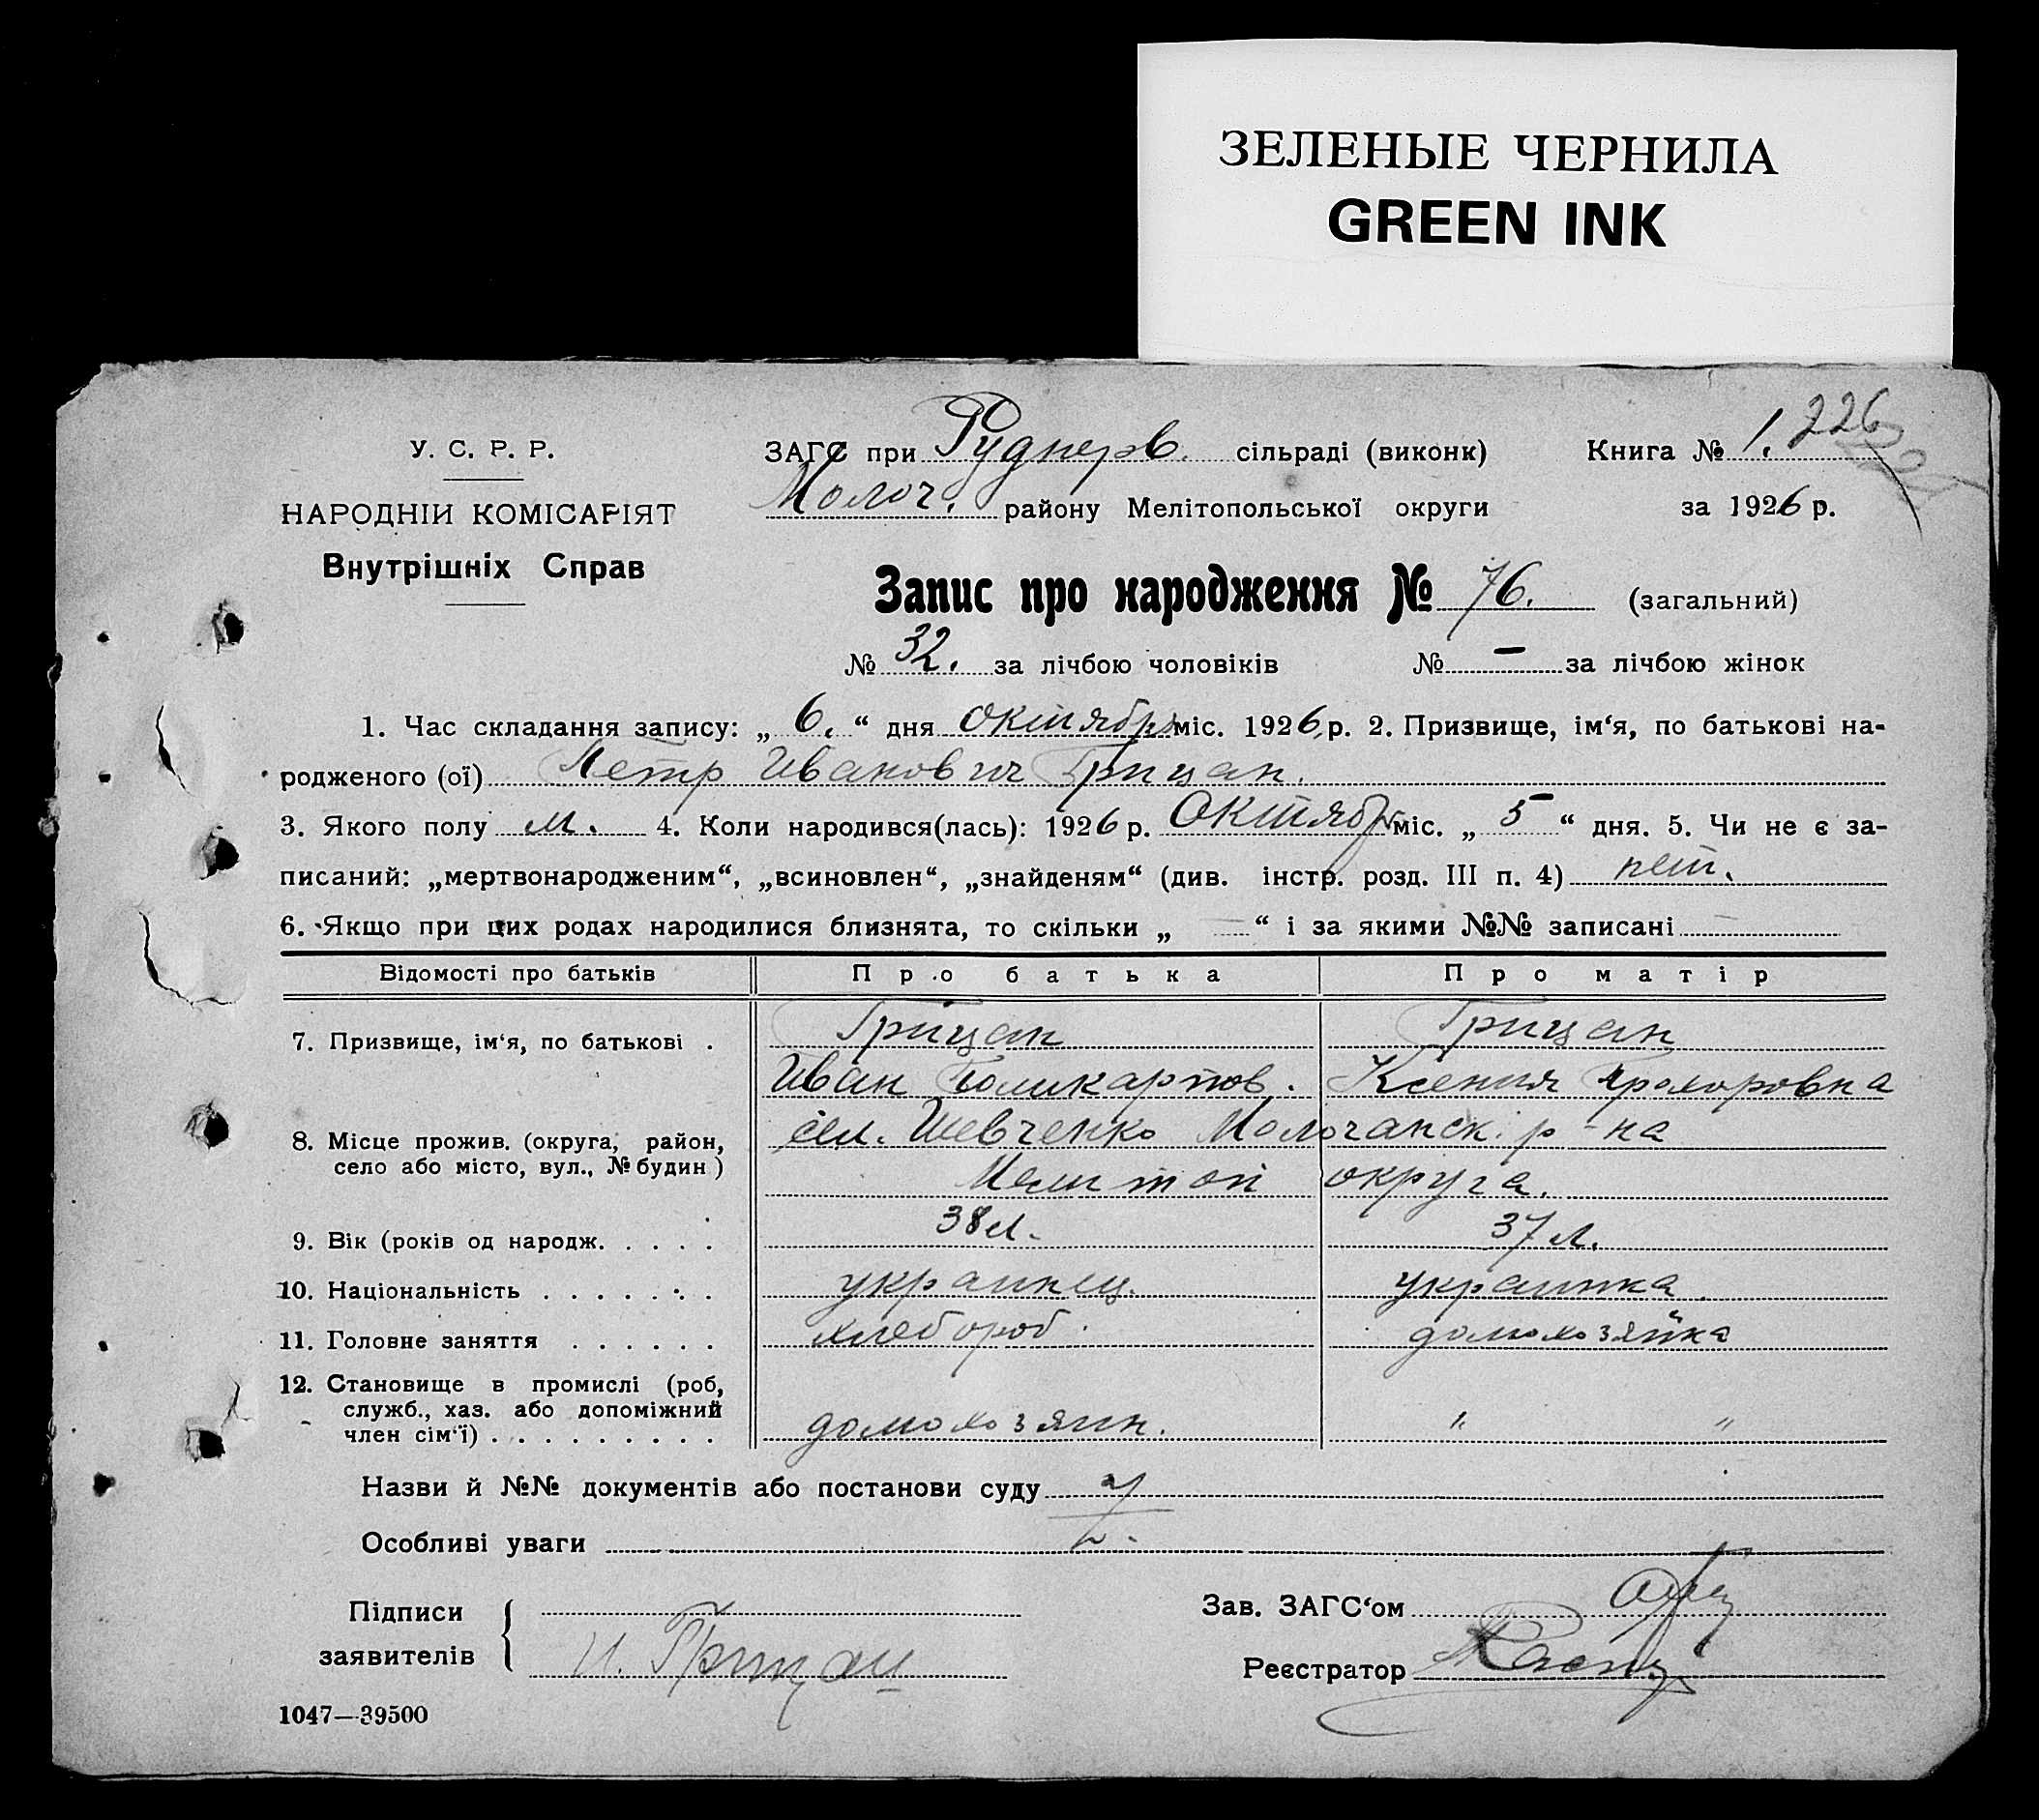 ЗЕЛЕНЫЕ ЧЕРНИЛА
GREEN INK
226
У. С. Р. Р.
ЗАГС при Руднерв. сільраді (виконк) Книга № 1.
Молоч. району Мелітопольської округи за 1926 р.
НАРОДНІИ КОМІСАРІЯТ
Внутрішніх Справ
Запис про народження № 76. (загальний)
№ 32. за лічбою чоловіків № — за лічбою жінок
1. Час складання запису: „ 6. “ дня октября міс. 1926 р. 2. Призвище, ім‘я, по батькові на-
родженого (ої) Петр Иванович Грицан.
3. Якого полу м. 4. Коли народився(лась): 1926 р. Октябр міс. „ 5 “ дня. 5. Чи не є за-
писаний: „мертвонародженим“, „всиновлен“, „знайденям“ (див. інстр. розд. III п. 4) нет.
6. Якщо при цих родах народилися близнята, то скільки „ — “ і за якими №№ записані —
Відомості про батьків Про батька Про матір
7. Призвище, ім‘я, по батькові . Грицан Грицан
Иван Поликарпов. Ксения Прохоровна
8. Місце прожив. (округа, район, сел. Шевченко Молочанск. р-на
село або місто, вул., № будин ) Мелитоп округа.
9. Вік (років од народж. . . . . 38 л. 37 л.
10. Національність . . . . . . . украинец. украинка.
11. Головне заняття . . . . . . хлебороб. домохозяйка
12. Становище в промислі (роб,
служб., хаз. або допоміжний
член сім‘ї) . . . . . . . . . домохозяин. " "
Назви й №№ документів або постанови суду
Особливі уваги
Підписи Зав. ЗАГС‘ом
заявителів И. Грицан Реєстратор
1047—39500